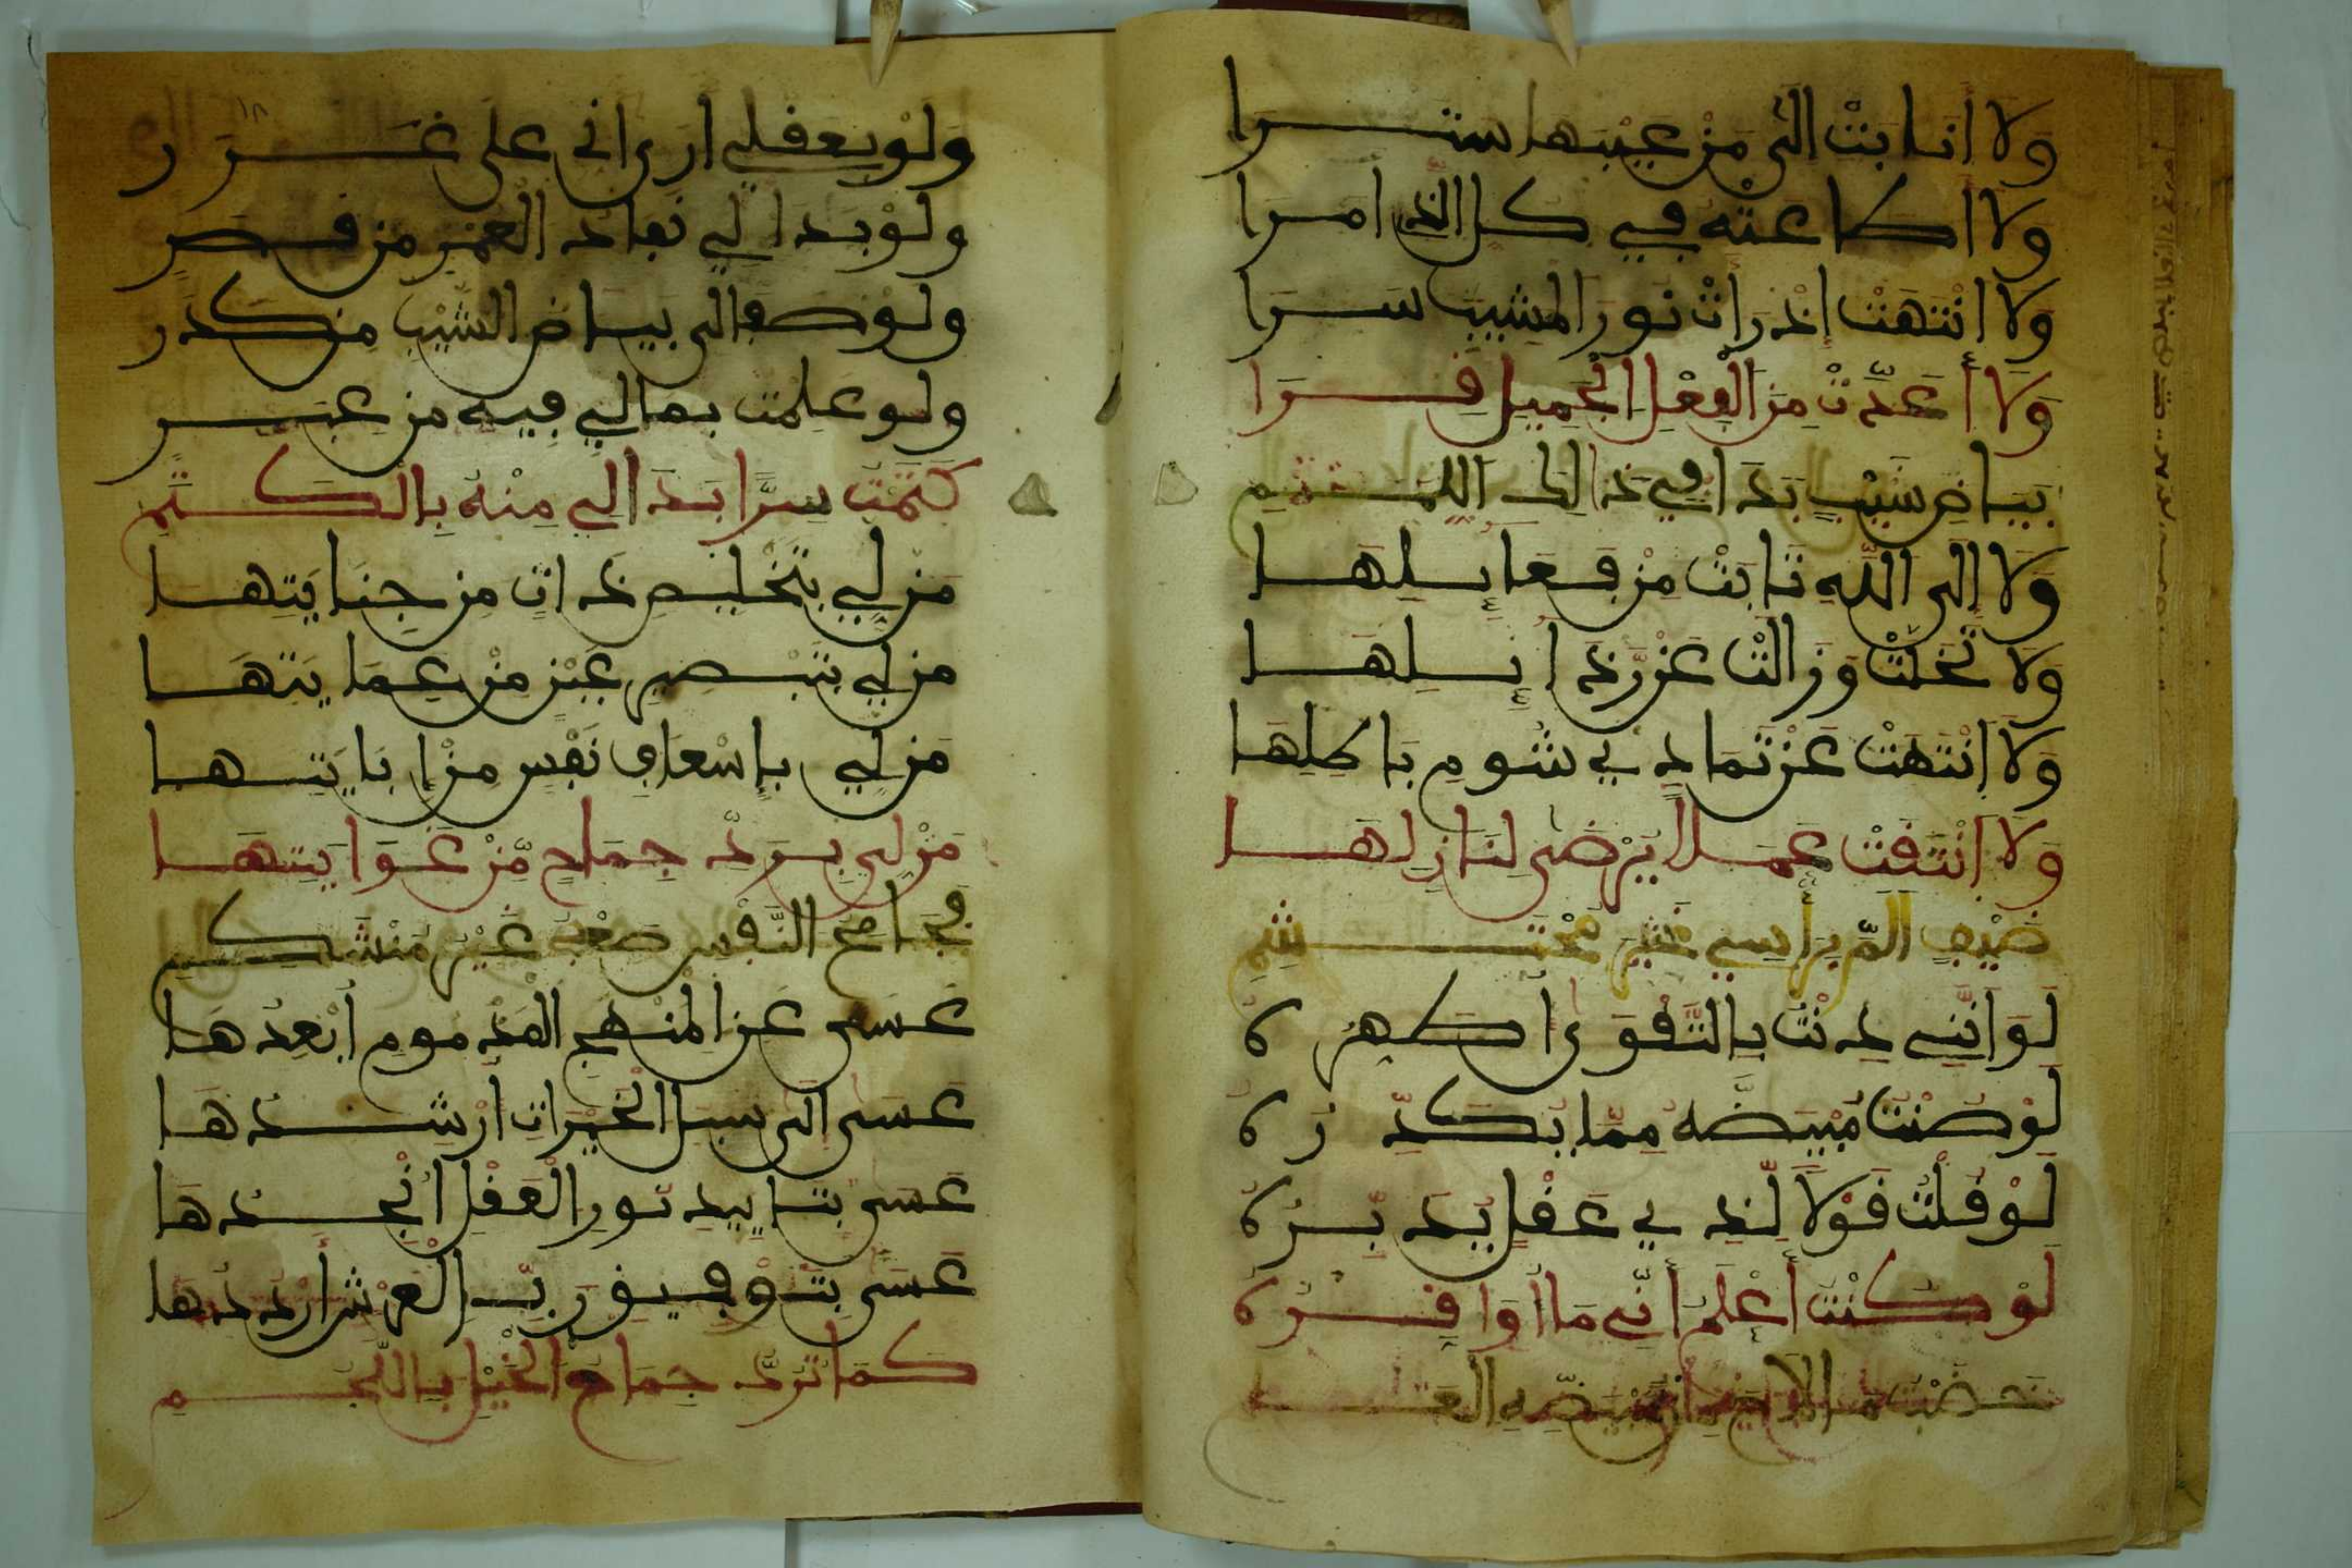 وَلَا أَنَابَتْ الَى مَنْ عَيْبَهَا سَتَرَا
وَلَا اطَاعَتْه فِي كل الذِي امَرَا
وَلَا انْتَهَتْ إِذ رَاتْ نُورَ المَشِيبِ سَرَا
وَلَا أَعَدَّتْ مِنَ الْفِعْلِ الْجَمِيلِ قِرَا
بَيَاضِ شَيْبٍ بَدَا فِي ذَالِكَ اللِّمَمِ
وَلَا إِلَى اللَّهِ تَابَتْ مِنْ فَعَائِلِهَا
وَلَا تَخَلَّتْ وَزَالَتْ عَنْ رَذَائِلِهَا
وَلَا انْتَهَتْ عَنْ تَمَادٍ فِي شُومِ بَاطِلِهَا
وَلَا انْتَقَتْ عَمَلًا يَرْضَى لِنَازِلِهَا
ضَيْفٍ أَلَمَّ بِرَأْسِي غَيْرَ مُحْتَشِمِ
لَوْ انَّنِي دِنْتُ بِالتَّقْوَى أُطَهِّرُهُ
لَوْ صُنْتُ مُبْيَضَّهُ مِمَّا يُكَدِّرُهُ
لَوْ قُلْتُ قَوْلًا لِذِي عَقْلٍ يُدَبِّرُهُ
لَوْ كُنْتُ أَعْلَمُ أَنِّي مَا أُوَقِّرُهُ
وَلَوْ بِعَقْلِي أَرَى أَنِّي عَلَى غَرَرِ
وَلَوْ بَدَا لِي نَفَادُ الْعُمْرِ مِنْ قِصَرِ
وَلَوْ صَفَا لِي بَيَاضُ الشَّيْبِ مِنْ كَدَرِ
وَلَوْ عَلِمْتُ بِمَا لِي فِيهِ مِنْ عِبَرِ
كَتَمْتُ سِرًّا بَدَا لِي مِنْهُ بِالْكَتَمِ
مَنْ لِي بِتَخْلِيصِ ذَاتٍ مِنْ جِنَايَتِهَا
مَنْ لِي بِتَبْصِيرِ عَيْنٍ مِنْ عِمَايَتِهَا
مَنْ لِي بِإِسْعَافِ نَفْسٍ مِنْ إِبَايَتِهَا
مَنْ لِي بِرَدِّ جِمَاحٍ مِّنْ غَوَايَتِهَا
فَجَامِحُ النَّفْسِ صَعْبٌ غَيْرُ مُنْشَكِمِ
عَسَى عَنِ الْمَنْهَجِ الْمَذْمُومِ أُبْعِدُهَا
عَسَى الَى سُبُلِ الْخَيْرَاتِ أُرْشِدُهَا
عَسَى بِتَايِيدِ نُورِ الْعَقْلِ أُنْجِدُهَا
عَسَى بِتَوْفِيقِ رَبِّ الْعَرْشِ أَرْدُدُهَا
كَمَا تُرَدُّ جِمَاحُ الْخَيْلِ بِاللُّجُمِ